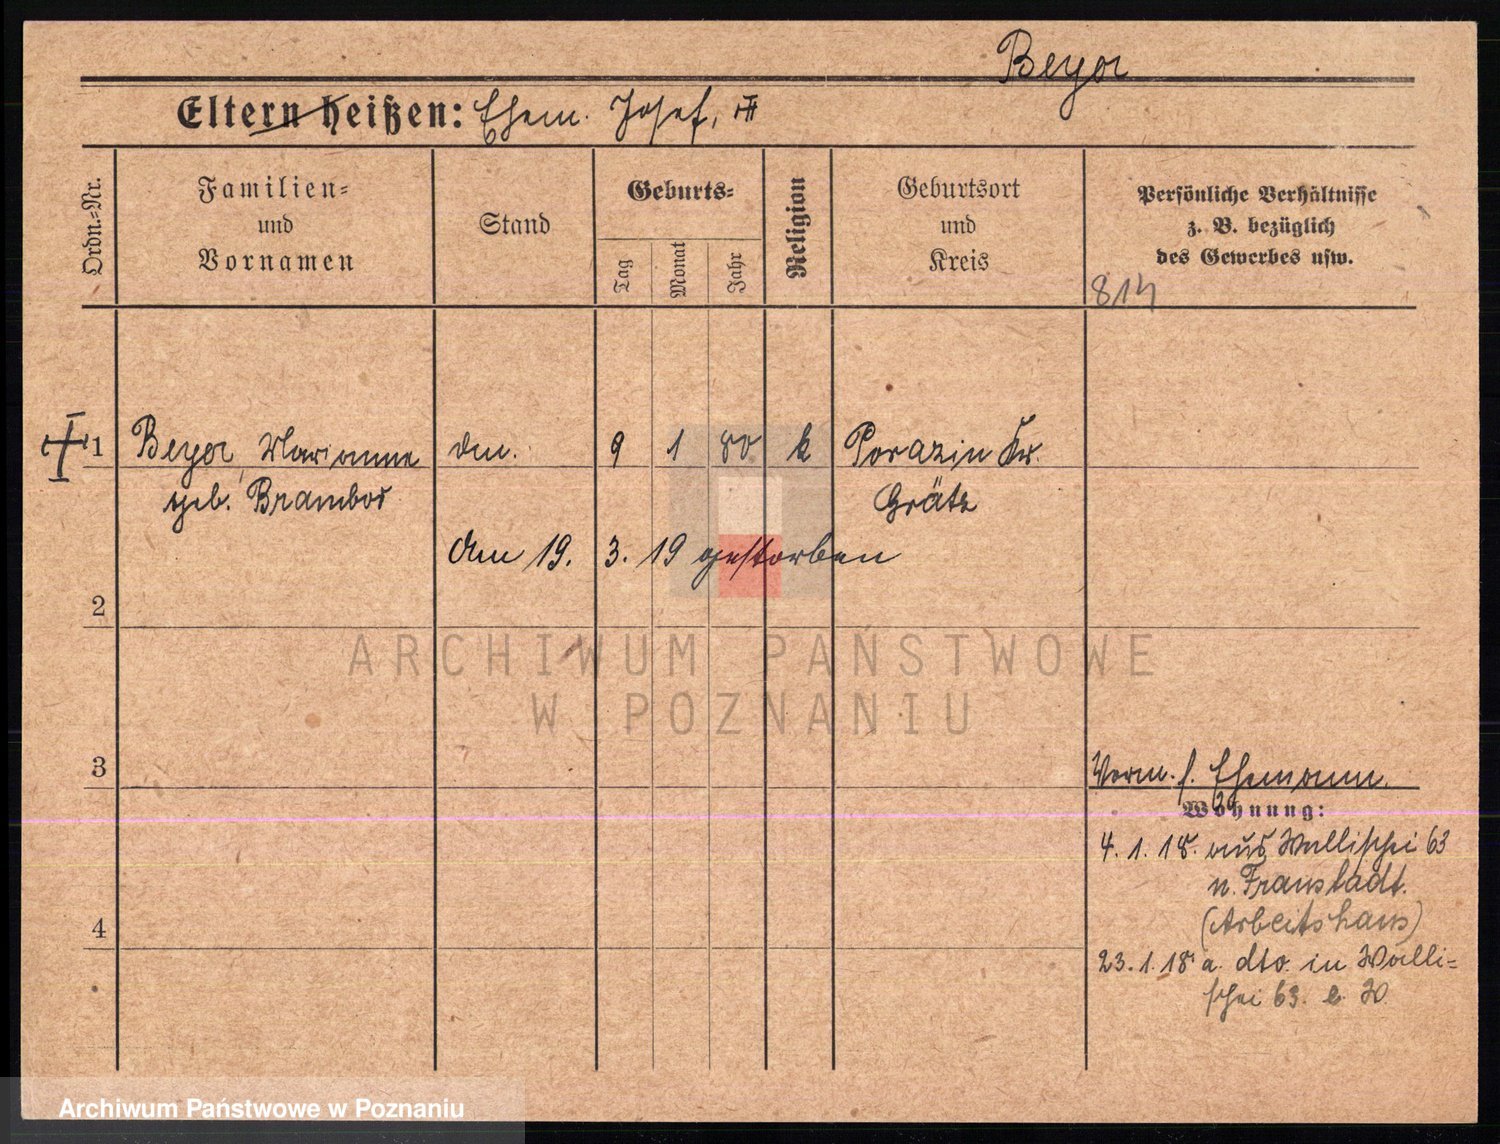 Beyer
Eltern heißen: Ehem. Josef,
Ordn.=Nr.
Familien=
und
Vornamen
Stand
Geburts=
Tag
Monat
Jahr
Religion
Geburtsort
und
Kreis
Persönliche Verhältnisse
z. B. bezüglich
des Gewerbes usw.
814
1 Beyer, Marianne 9 1 80 k Porazin Kr.
geb. Brambor Grätz
Am 19. 3. 19 gestorben
2
3
Verm. s. Ehemann.
Wohnung:
4. 1. 18. aus Wallischei 63
n. Fraustadt.
(Arbeitshaus)
23. 1. 18 a. dto. in Walli=
schei 63. b.
4
ARCHIWUM PAŃSTWOWE
W POZNANIU
Archiwum Państwowe w Poznaniu